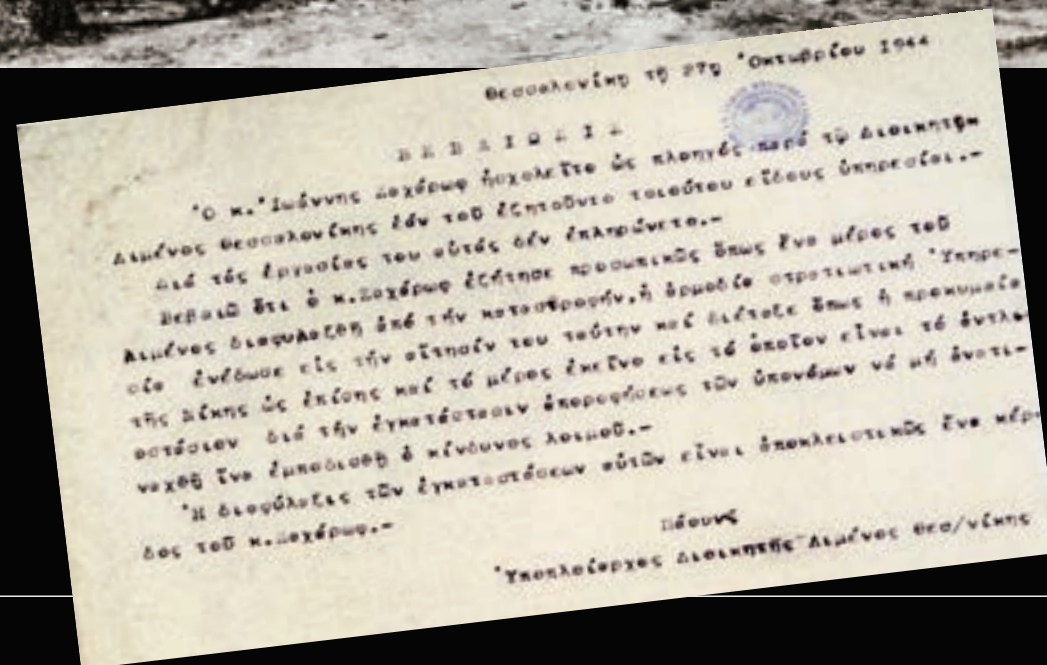 Θεσσαλονίκη τῇ 27ῃ Ὀκτωβρίου 1944
ΒΕΒΑΙΩΣΙΣ
Ὁ κ. Ἰωάννης Ζαχάρωφ ἠσχολεῖτο ὡς πλοηγός παρά τῷ Διοικητῇ
Λιμένος Θεσσαλονίκης ἐάν τοῦ ἐζητοῦντο τοιούτου εἴδους ὑπηρεσίαι.-
Διά τάς ἐργασίας του αὐτάς δέν ἐπληρώνετο.-
Βεβαιῶ ὅτι ὁ κ.Ζαχάρωφ ἐζήτησε προσωπικῶς ὅπως ἕνα μέρος τοῦ
Λιμένος διαφυλαχθῇ ἀπό τήν καταστροφήν, ἡ ἁρμοδία στρατιωτική Ὑπηρε-
σία ἐνέδωσε εἰς τήν αἴτησίν του ταύτην καί διέταξε ὅπως ἡ προκυμαία
τῆς Δίκης ὡς ἐπίσης καί τό μέρος ἐκεῖνο εἰς τό ὁποῖον εἶναι τό ἀντλι
οστάσιον διά τήν ἐγκατάστασιν ἀπορροφήσεως τῶν ὑπονόμων νά μή ἀνατι-
ναχθῇ ἵνα ἐμποδισθῇ ὁ κίνδυνος λοιμοῦ.-
Ἡ διαφύλαξις τῶν ἐγκαταστάσεων αὐτῶν εἶναι ἀποκλειστικῶς ἕνα κέρ
δος τοῦ κ.Ζαχάρωφ.-
Ὑποπλοίαρχος Διοικητής Λιμένος Θεσ/νίκης